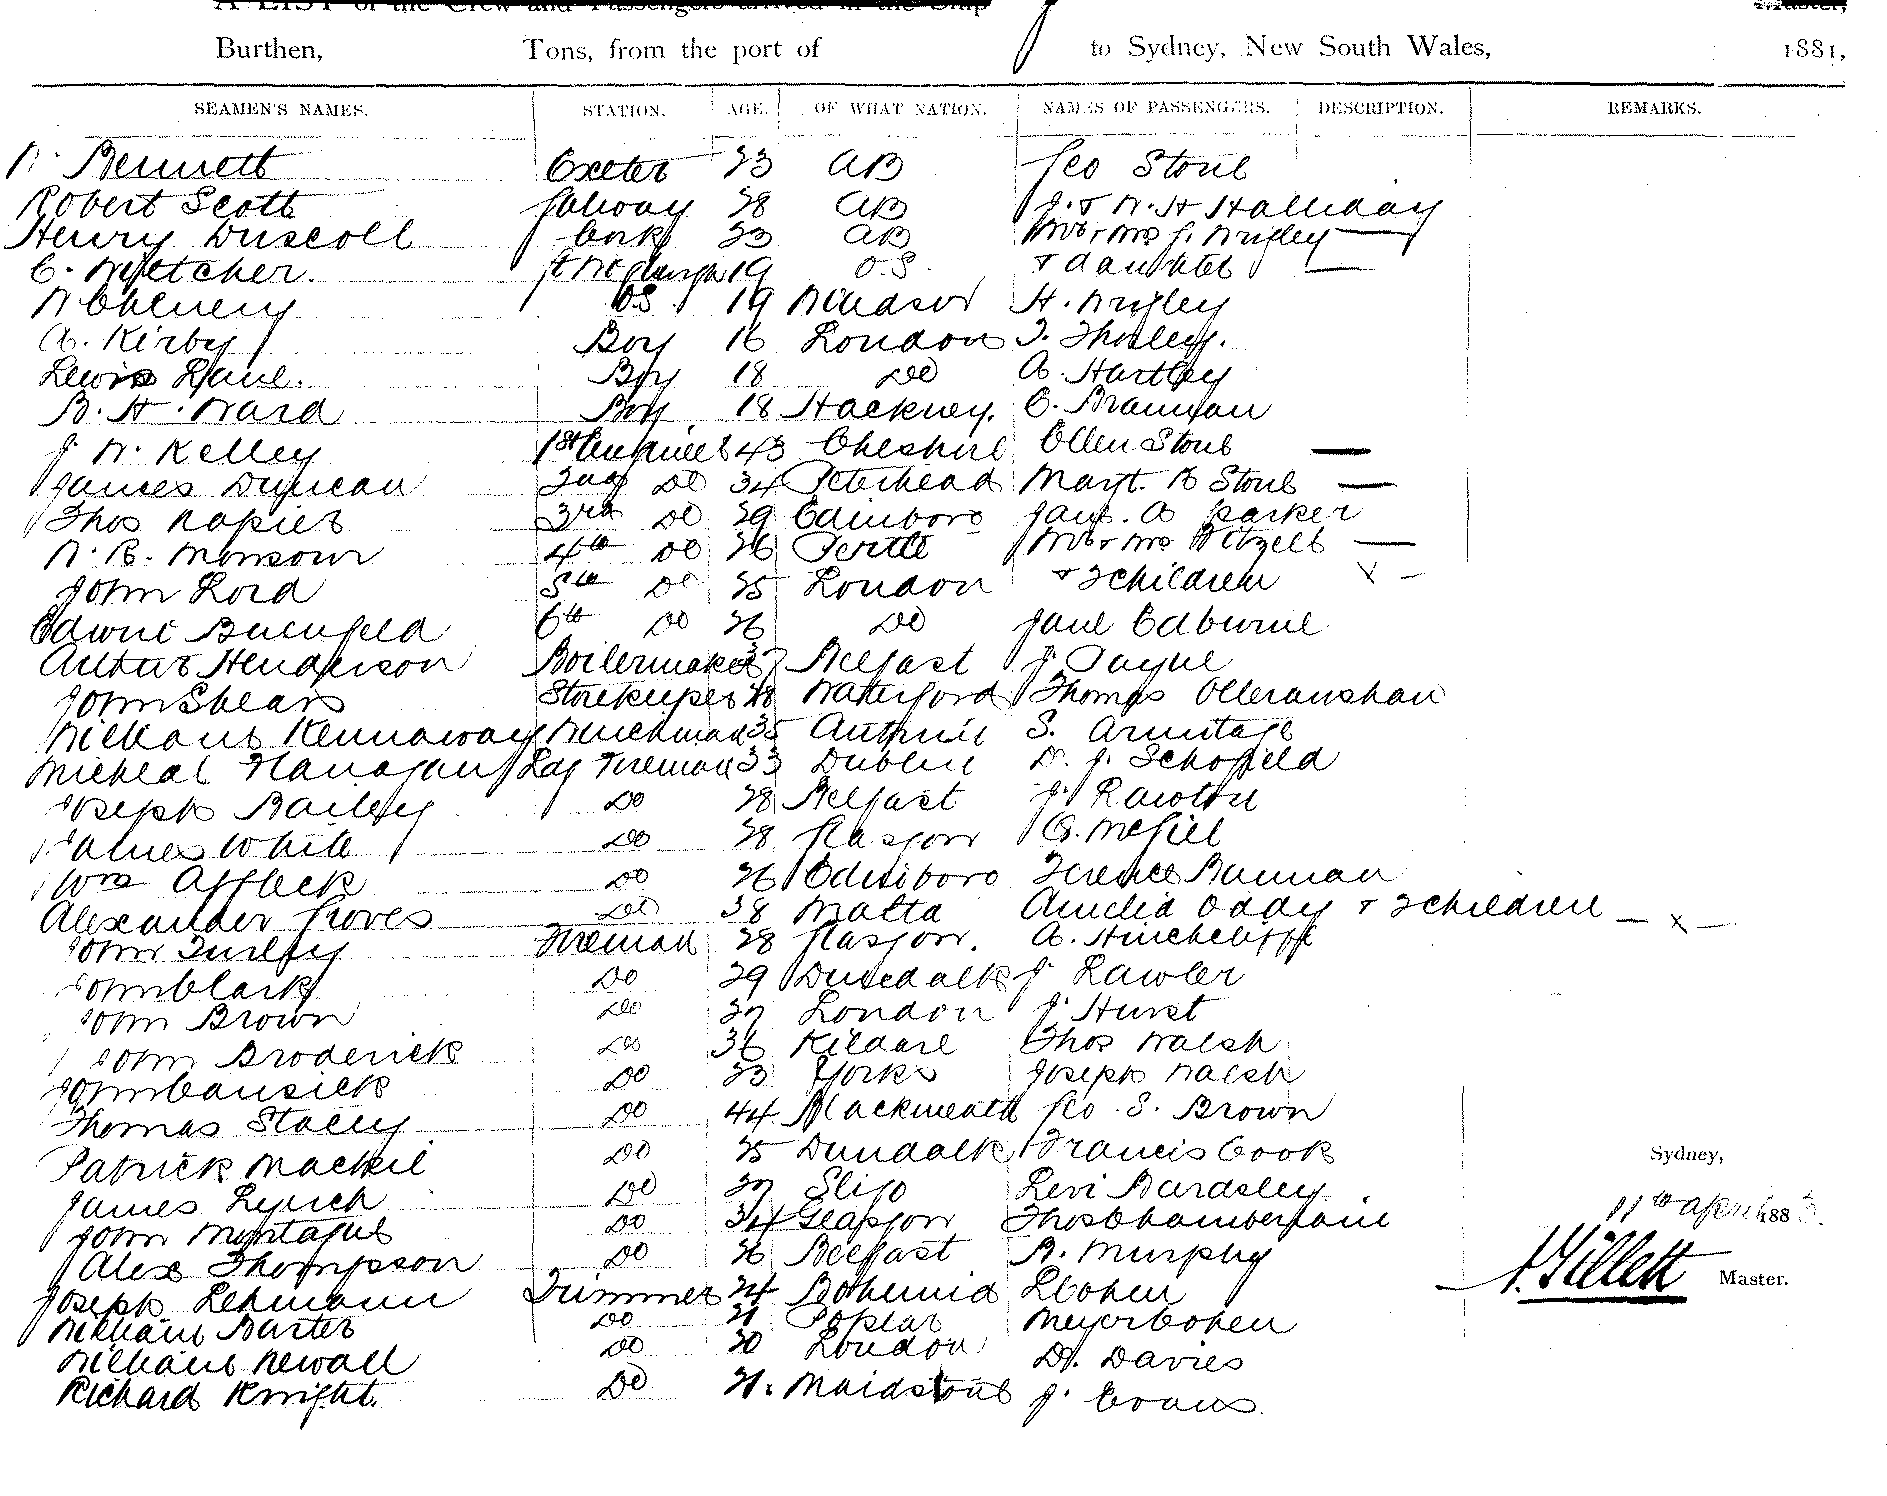 A LIST of the Crew and Passengers arrived in the Ship Master,
Burthen, Tons, from the port of to Sydney, New South Wales, 1881,
SEAMEN'S NAMES. STATION. AGE. OF WHAT NATION. NAMES OF PASSENGERS. DESCRIPTION. REMARKS.
W. Bennett Exeter 23 AB Geo Stone
Robert Scott Galway 28 AB J. & W. H Halliday
Henry Driscoll Cork 23 AB Mr & Mrs J. Wrigley —
C. 19 O.S. & daughter —
OS 19 Windsor H. Wrigley
A. Kirby Boy 16 London T. Thorley.
Lewis Lane. Boy 18 Do A. Hartley
B. H. Ward Boy 18 Hackney. C. Brannan
J. W. Kelley 1st Engineer 43 Cheshire Ellen Stone —
James Duncan 2nd Do 34 Peterhead Margt. B Stone —
Thos Napier 3rd Do 29 Edinboro Jane. A Parker
W. R. Monsour 4th Do 26 Perth Mr & Mrs —
John Lord 5th Do 25 London & 2 children x –
Edwin 6th Do 26 Do Jane Edburne
Arthur Henderson Boilermaker Belfast J. Payne
John Shears Storekeeper 28 Waterford Thomas Olleranshaw
William Kennaway Winchman 35 Antrim S. Armitage
Micheal Flanagan Fireman 33 Dublin D. J. Schofield
Joseph Bailey Do 28 Belfast J. Rawton
James White Do 28 Glasgow G. McGill
Wm Affleck Do 26 Edinboro Terence Bannan
Alexander Groves Do 38 Malta Amelia Oddy & 2 children – x –
John Turley Fireman 28 Glasgow. A. Hinchcliffe
John Clark Do 29 Dundalk J. Lawler
John Brown Do 27 London J. Hurst
John Broderick Do 36 Kildare Thos Walsh
John Cansick Do 23 Yorks Joseph Walsh
Thomas Stacey Do 44 Blackheath Geo. S. Brown
Patrick Mackie Do 25 Dundalk Francis Cook
Sydney,
James Lynch Do 27 Sligo Levi Bardsley.
11th April 1883.
John Montague Do 34 Glasgow Thos Chamberlaine
Alex Thompson Do 26 Belfast B. Murphy
J. Gillett Master.
Joseph Lehmann Trimmer 24 Bohemia L Cohen
William Barter Do 21 Poplar Meyer Cohen
William Newall Do 20 London D. Davies
Richard Knight. Do 21. Maidstone J. Evans